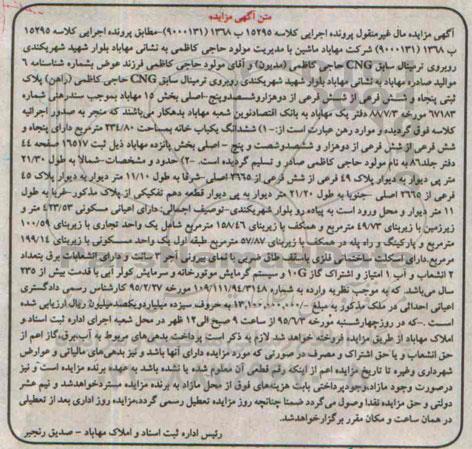 متن آگهی مزایده
آگهی مزایده مال غیرمنقول پرونده اجرایی کلاسه ۱۵۲۹۵ ب ۱۳۶۸ (۹۰۰۰۱۳۱)–مطابق پرونده اجرایی کلاسه ۱۵۲۹۵
ب ۱۳۶۸ (۹۰۰۰۱۳۱) شرکت مهاباد ماشین با مدیریت مولود حاجی کاظمی به نشانی مهاباد بلوار شهید شهریکندی
روبروی ترمینال سابق CNG حاجی کاظمی (مدیون) و آقای مولود حاجی کاظمی فرزند عوض بشماره شناسنامه ۶
موالید صادره مهاباد به نشانی مهاباد بلوار شهید شهریکندی روبروی ترمینال سابق CNG حاجی کاظمی (راهن) پلاک
ثبتی پنجاه و شش فرعی از شش فرعی از دوهزاروششصدوپنج–اصلی بخش ۱۵ مهاباد بموجب سندرهنی شماره
۶۷۱۸۳ مورخه ۸۸۷/۳ دفتر یک مهاباد به بانک اقتصادنوین شعبه مهاباد بدهکار می‌باشند که منجر به صدور اجرائیه
کلاسه فوق گردیده و موارد رهن عبارت است از:–۱ ششدانگ یکباب خانه بمساحت ۲۳۴/۸۰ مترمربع دارای پنجاه و
شش فرعی از شش فرعی از دوهزار و ششصدوشصت و پنج – اصلی بخش پانزده مهاباد ذیل ثبت ۱۶۵۱۷ صفحه ۴۴
دفتر جلد۸۶ به نام مولود حاجی کاظمی صادر و تسلیم گردیده است. –۲ حدود و مشخصات–شمالا به طول ۲۱/۳۰
متر پی دیوار به دیوار پلاک ۴۹ فرعی از شش فرعی از ۳۶۶۵ اصلی–شرقا به طول ۱۱/۱۰ متر دیوار به دیوار پلاک ۴۵
فرعی از ۳۶۶۵ اصلی –جنوبا به طول ۲۱/۲۰ متر دیوار به پی دیوار قطعه دهم تفکیکی از پلاک مذکور–غربا به طول
۱۱ متر دیوار و محل ورود است به پیاده رو بلوار شهریکندی–توصیف اجمالی: دارای اعیانی مسکونی ۴۳۳/۵۳ متر و
زیرزمین با زیربنای ۴۹/۷۳ مترمربع و همکف با زیربنای ۱۵۸/۴۶ مترمربع شامل یک واحد تجاری با زیربنای ۱۰۰/۵۹
مترمربع و پارکینگ و راه پله در همکف با زیربنای ۵۷/۸۷ مترمربع طبقه اول یک واحد مسکونی با زیربنای ۱۹۹/۱۴
مترمربع.دارای اسکلت ساختمانی فلزی باسقف طاق ضربی با نمای بیرونی آجر ۳ سانت و دارای انشعابات برق بتعداد
۲ انشعاب و آب ۱ امتیاز و اشتراک گاز G10 و سیستم گرمایش موتورخانه و سرمایش کولر آبی با قدمت بیش از ۲۳۵
سال می‌باشد. که به موجب نظریه وارده به شماره ۱۰۹/۱۱۱/۹۴/۳۱۴۸ مورخه ۹۵/۲/۲۷ کارشناس رسمی دادگستری
اعیانی احداثی در ملک مذکور به مبلغ –/۱۳,۱۰۰,۰۰۰,۰۰۰ به حروف سیزده میلیاردویکصدمیلیون ریال ارزیابی شده
است. –که در روزچهارشنبه مورخه ۹۵/۶/۳ از ساعت ۹ صبح الی ۱۲ ظهر در محل شعبه اجرای اداره ثبت اسناد و
املاک مهاباد از طریق مزایده فروخته خواهدشد لازم به ذکر است پرداخت بدهی‌های مربوط به آب،برق، گاز اعم از
حق انشعاب و یا حق اشتراک و مصرف در صورتی که مورد مزایده دارای آنها باشد و نیز بدهی‌های مالیاتی و عوارض
شهرداری وغیره تا تاریخ مزایده اعم از اینکه رقم قطعی آن معلوم شده یا نشده باشد به عهده برنده مزایده است و نیز
درصورت وجود مازاد،وجودپرداختی بابت هزینه‌های فوق از محل مازاد به برنده مزایده مستردخواهدشد و نیم عشر
دولتی و حق مزایده نقدا وصول می‌گردد ضمنا چنانچه روز مزایده تعطیل رسمی گردد،مزایده روز اداری بعد از تعطیلی
در همان ساعت و مکان مقرر برگزارخواهدشد.
رئیس اداره ثبت اسناد و املاک مهاباد – صدیق رنجبر